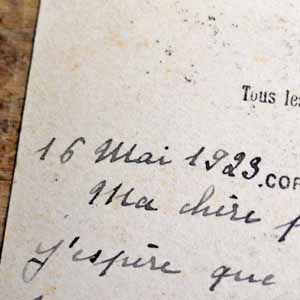 Tous les
16 Mai 1923
.COR
Ma chère
j'espère que